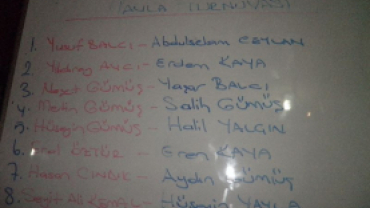 TAVLA TURNUVASI
1. Yusuf BALCI - Abdulselam CEYLAN
2. Yılmaz AVCI - Erdem KAYA
3. Neşat GÜMÜŞ - Yaşar BALCI
4. Metin GÜMÜŞ - Salih GÜMÜŞ
5. Hüseyin GÜMÜŞ - Halil YALGIN
6. ÖZTÜR - Eren KAYA
7. Hasan - Aydın GÜMÜŞ
8. Seyit Ali - Hüseyin YAYLA